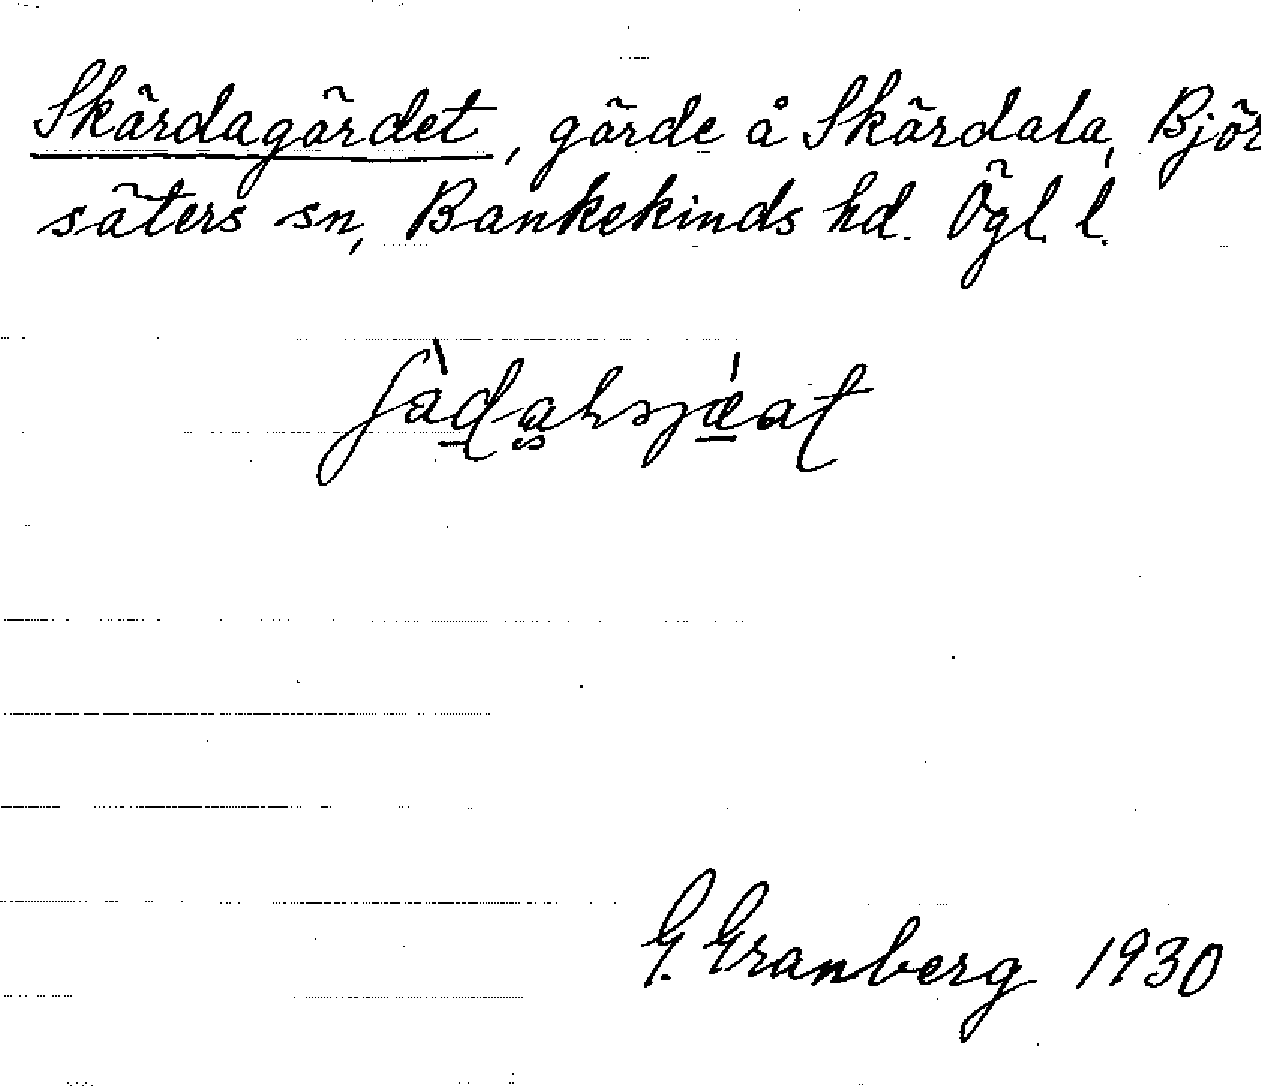 Skärdagärdet, gärde å Skärdala, Björ
säters sn, Bankekinds hd. Ögl. l.
G. Granberg 1930